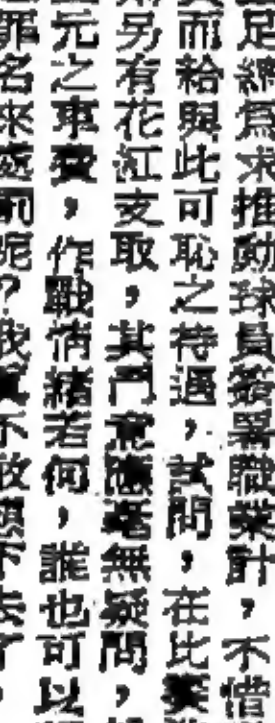 足總爲求推動球員簽署職業計，不惜
而給與此可恥之待遇，試問，在比賽
另有花紅支取，其鬥意隨毫無疑問，
元之車費，作戰情緒若何，誰也可以
罪名來處罰呢？我真不敢想下去了，